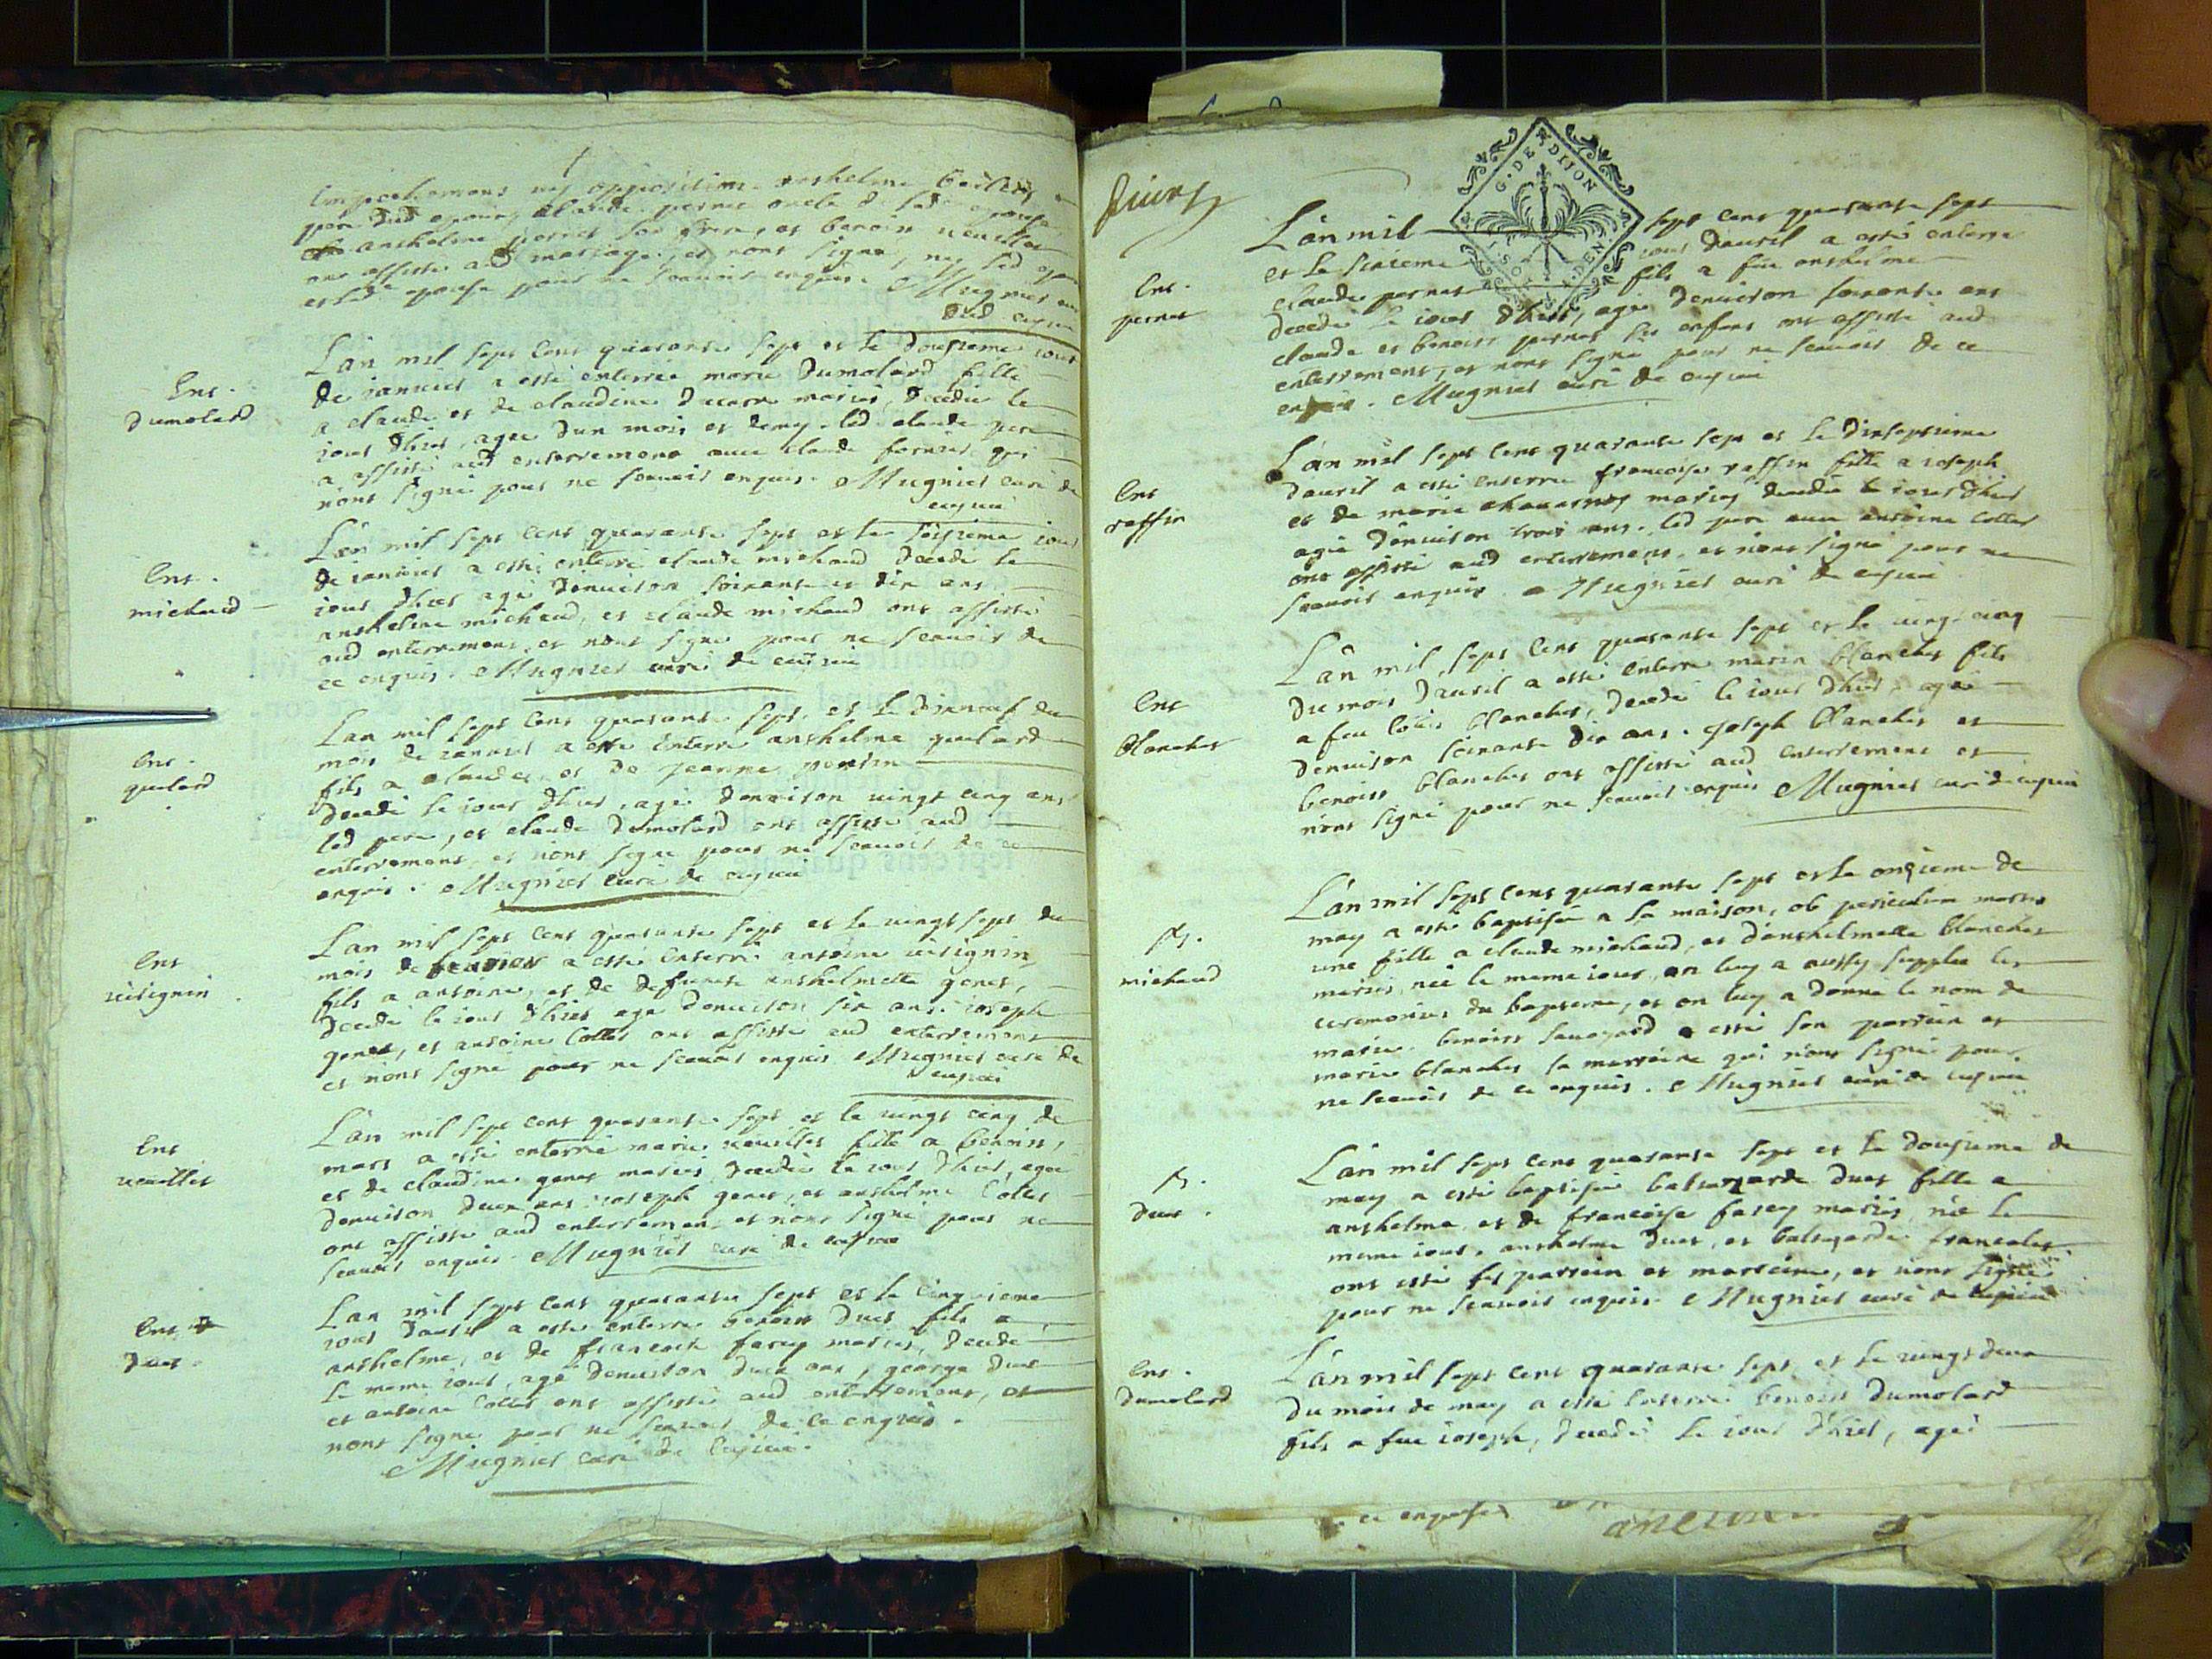 empechement ny opposition anthelme
pere dud epoux claude perret oncle de lad epouse
anthelme perret son frere, et benoist neuillet
ont assisté aud mariage, et n'ont signé, ny led epoux
et lad epouse pour ne scavoir enquis. Mugnier curé
dud cuzieu
Ent.
dumolard
L'an mil sept cent quarante sept et le dousieme jour
de janvier a esté enterrée marie dumolard fille
a claude et de claudine mariés, decedée le
jour d'hier, agée d'un mois et demy. led claude pere
a assisté aud enterrement avec claude fornier qui
n'ont signé pour ne scavoir enquis. Mugnier curé de
cuzieu
Ent.
michaud
L'an mil sept cent quarante sept et le seisieme jour
de janvier a esté enterré claude michaud decedé le
jour d'hier agé denviron soixante et dix ans
anthelme michaud, et claude michaud ont assisté
aud enterrement, et n'ont signé pour ne scavoir de
ce enquis. Mugnier curé de cuzieu
Ent.
guelard
L'an mil sept cent quarante sept, et le dixneuf du
mois de janvier a esté enterré anthelme guelard
fils a claude, et de jeanne
decedé le jour d'hier, agé denviron vingt cinq ans
led pere, et claude dumolard ont assisté aud
enterrement, et n'ont signé pour ne scavoir de ce
enquis. Mugnier curé de cuzieu
Ent
L'an mil sept cent quarante sept et le vingt sept du
mois de a esté enterré antoine
fils a antoine, et de defunte anthelmette genet,
decedé le jour d'hier agé denviron six ans. joseph
genet, et antoine collet ont assisté aud enterrement
et n'ont signé pour ne scavoir enquis Mugnier curé de
cuzieu
Ent
neuillet
L'an mil sept cent quarante sept et le vingt cinq de
mars a esté enterré marie neuillet fille a benoist,
et de claudine genet mariés, decedée le jour d'hier, agée
denviron deux ans. joseph genet, et anthelme collet
ont assisté aud enterrement et n'ont signé pour ne
scavoir enquis. Mugnier curé de cuzieu
Ent.
duet.
L'an mil sept cent quarante sept et le cinquieme
jour d'avril a esté enterré benoist duet fils a
anthelme, et de francoise farcy mariés, decedé
le meme jour, agé denviron deux ans, george duet
et antoine collet ont assisté aud enterrement, et
n'ont signé pour ne scavoir de ce enquis.
Mugnier curé de cuzieu.
G. DE DIJON
L'an mil sept cent quarante sept
et le jour d'avril a esté enterré
Ent.
pernet
claude pernet fils a feu anthelme
decedé le jour d'hier, agé denviron soixante ans
claude et benoist pernet ses enfans ont assisté aud
enterrement, et n'ont signé pour ne scavoir de ce
enquis. Mugnier curé de cuzieu
Ent
raffin
L'an mil sept cent quarante sept et le dixseptieme
d'avril a esté enterrée francoise raffin fille a joseph
et de marie mariés decedée le jour d'hier
agée denviron trois ans. led pere avec antoine collet
ont assisté aud enterrement, et n'ont signé pour ne
scavoir enquis. Mugnier curé de cuzieu
Ent
blanchet
L'an mil sept cent quarante sept et le vingt cinq
du mois d'avril a esté enterré marin blanchet fils
a feu louis blanchet, decedé le jour d'hier, agé
denviron soixante dix ans. joseph blanchet et
benoist blanchet ont assisté aud enterrement et
n'ont signé pour ne scavoir enquis Mugnier curé de cuzieu
michaud
L'an mil sept cent quarante sept et le onzieme de
may a esté baptisée a la maison, ob periculum mortis
une fille a claude michaud, et d'anthelmette blanchet
mariés, née le meme jour, on luy a aussy supplée les
ceremonies du bapteme, et on luy a donné le nom de
marie. benoist savoyard a esté son parrein et
marie blanchet sa marreine qui n'ont signé pour
ne scavoir de ce enquis. Mugnier curé de cuzieu
duet.
L'an mil sept cent quarante sept et le dousieme de
may a esté baptisée balthazarde duet fille a
anthelme, et de francoise farcy mariés, née le
meme jour. anthelme duet, et balthazarde
ont esté ses parrein et marreine, et n'ont signé
pour ne scavoir enquis. Mugnier curé de cuzieu
Ent.
dumolard
L'an mil sept cent quarante sept, et le vingt deux
du mois de may a esté enterré benoist dumolard
fils a feu joseph, decedé le jour d'hier, agé